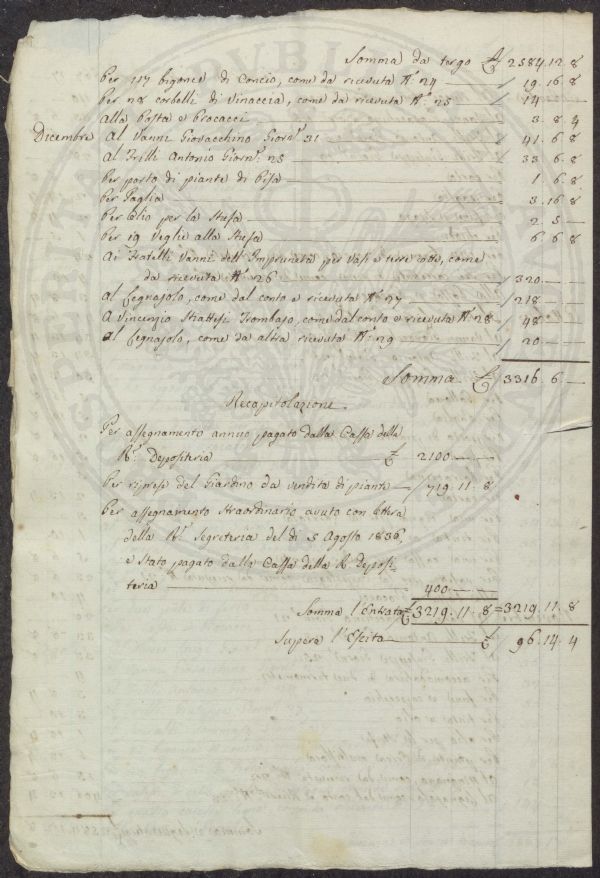 Somma da tergo £ 2584.12.8
Per 117 bigonce di Concio, come da ricevuta N.° 24 — / 19.16.8
Per n.8 corbelli di Vinaccia, come da ricevuta N.° 25 — / 14 —
alla Posta e Procacci — 3.8.4
Dicembre Al Vanni Giovacchino Giorn.e 31 — / 41.6.8
Al Frilli Antonio Giorn.e 25 — / 33.6.8
Per porto di piante di Pisa — 1.6.8
Per Paglia — 3.16.8
Per olio per la Stufa — 2.5.—
Per 19 Veglie alla Stufa — 6.6.8
Ai Fratelli Vanni dell'Impruneta per Vasi e terre cotte, come
da ricevuta N.° 26 — / 320 —
Al Legnajolo, come dal conto e ricevuta N.° 27 — / 218 —
A Vincenzio Trombajo, come dal conto e ricevuta N.° 28 — / 48 —
Al Legnajolo, come da altra ricevuta N.° 29 — / 20 —
Somma £ 3316.6.—
Recapitolazione
Per assegnamento annuo pagato dalla Cassa della
R. Depositeria — £ 2100.—.—
Per riprese del Giardino da vendita di piante — / 719.11.8
Per assegnamento straordinario avuto con lettera
della R. Segreteria del dì 5 Agosto 1836,
e stato pagato dalla Cassa della R. Deposi-
teria — 400 — —
Somma l'Entrata £ 3219.11.8 = 3219.11.8
Supera l'Escita — £ 96.14.4